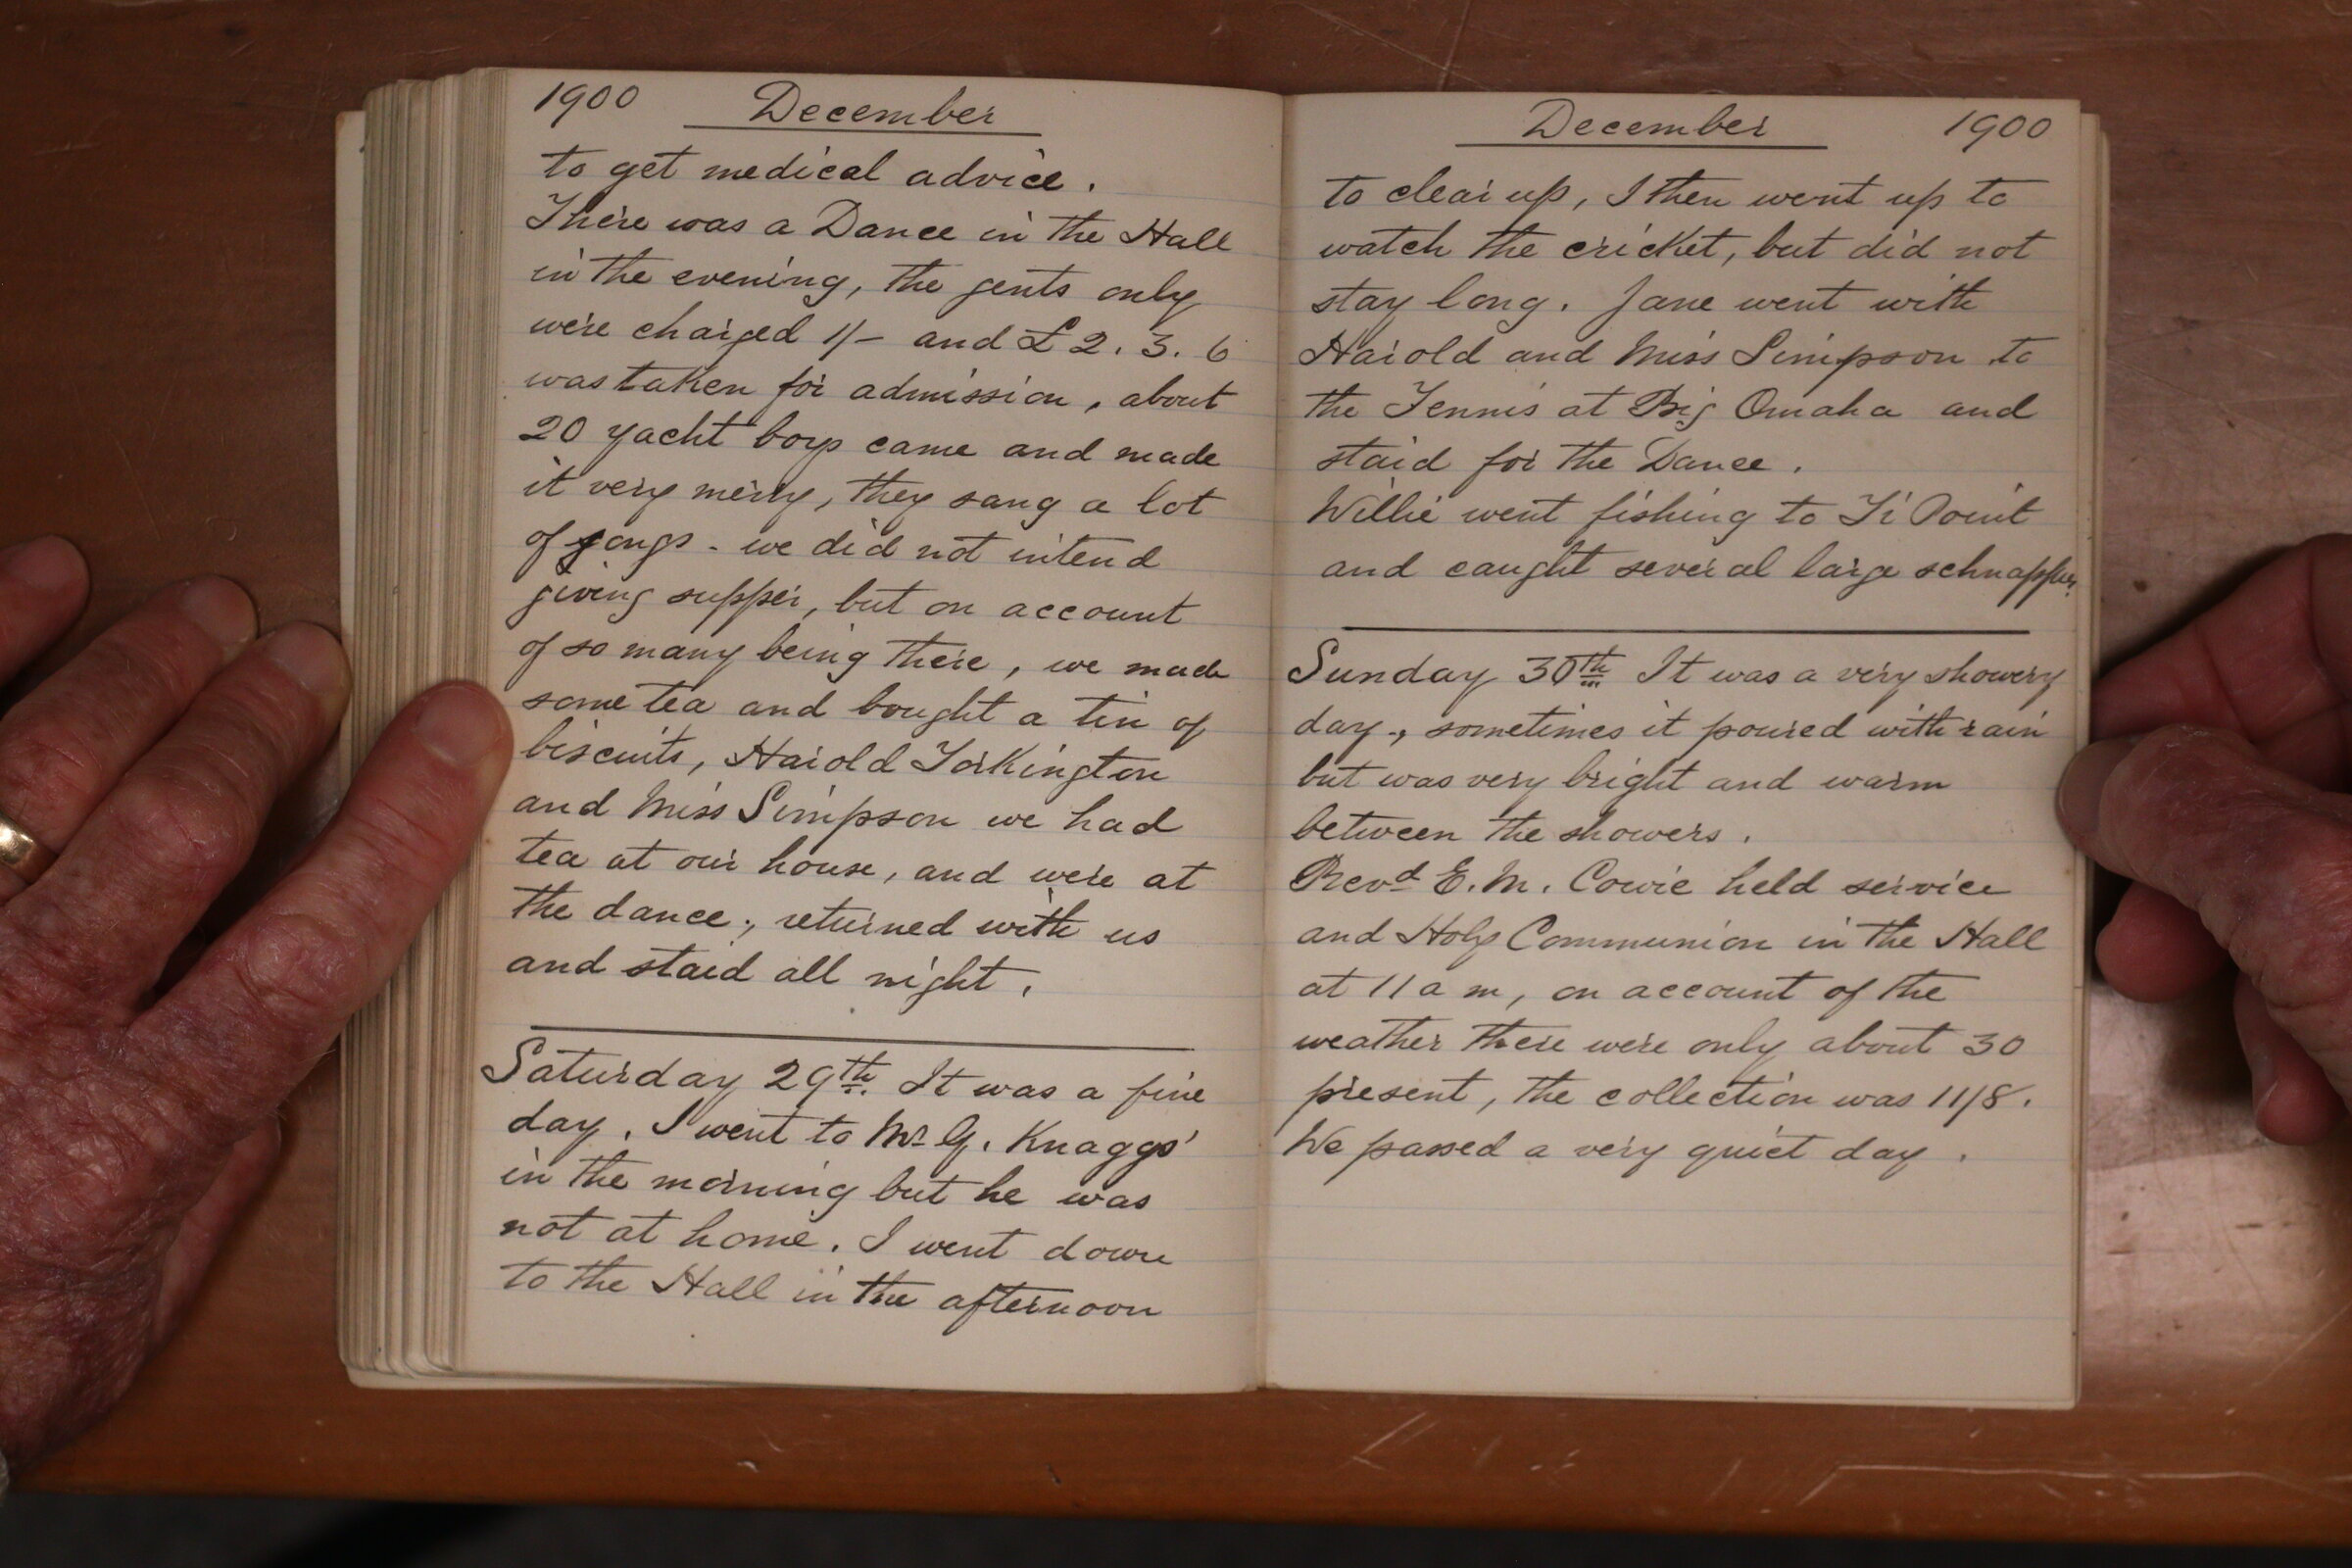 1900 December
to get medical advice.
There was a Dance in the Hall
in the evening, the gents only
were charged 1/- and £2. 3. 6
was taken for admission, about
20 yacht boys came and made
it very merry, they sang a lot
of songs - we did not intend
giving supper, but on account
of so many being there, we made
some tea and bought a tin of
biscuits, Harold Torkington
and Miss Simpson we had
tea at our house, and were at
the dance, returned with us
and staid all night.
Saturday 29th. It was a fine
day. I went to Mr G. Knaggs'
in the morning but he was
not at home. I went down
to the Hall in the afternoon
December 1900
to clear up, I then went up to
watch the cricket, but did not
stay long. Jane went with
Harold and Miss Simpson to
the Tennis at Big Omaha and
staid for the Dance.
Willie went fishing to Ti Point
and caught several large schnapper.
Sunday 30th It was a very showery
day., sometimes it poured with rain
but was very bright and warm
between the showers.
Revd E. M. Cowie held service
and Holy Communion in the Hall
at 11 a m, on account of the
weather there were only about 30
present, the collection was 11/8.
We passed a very quiet day.